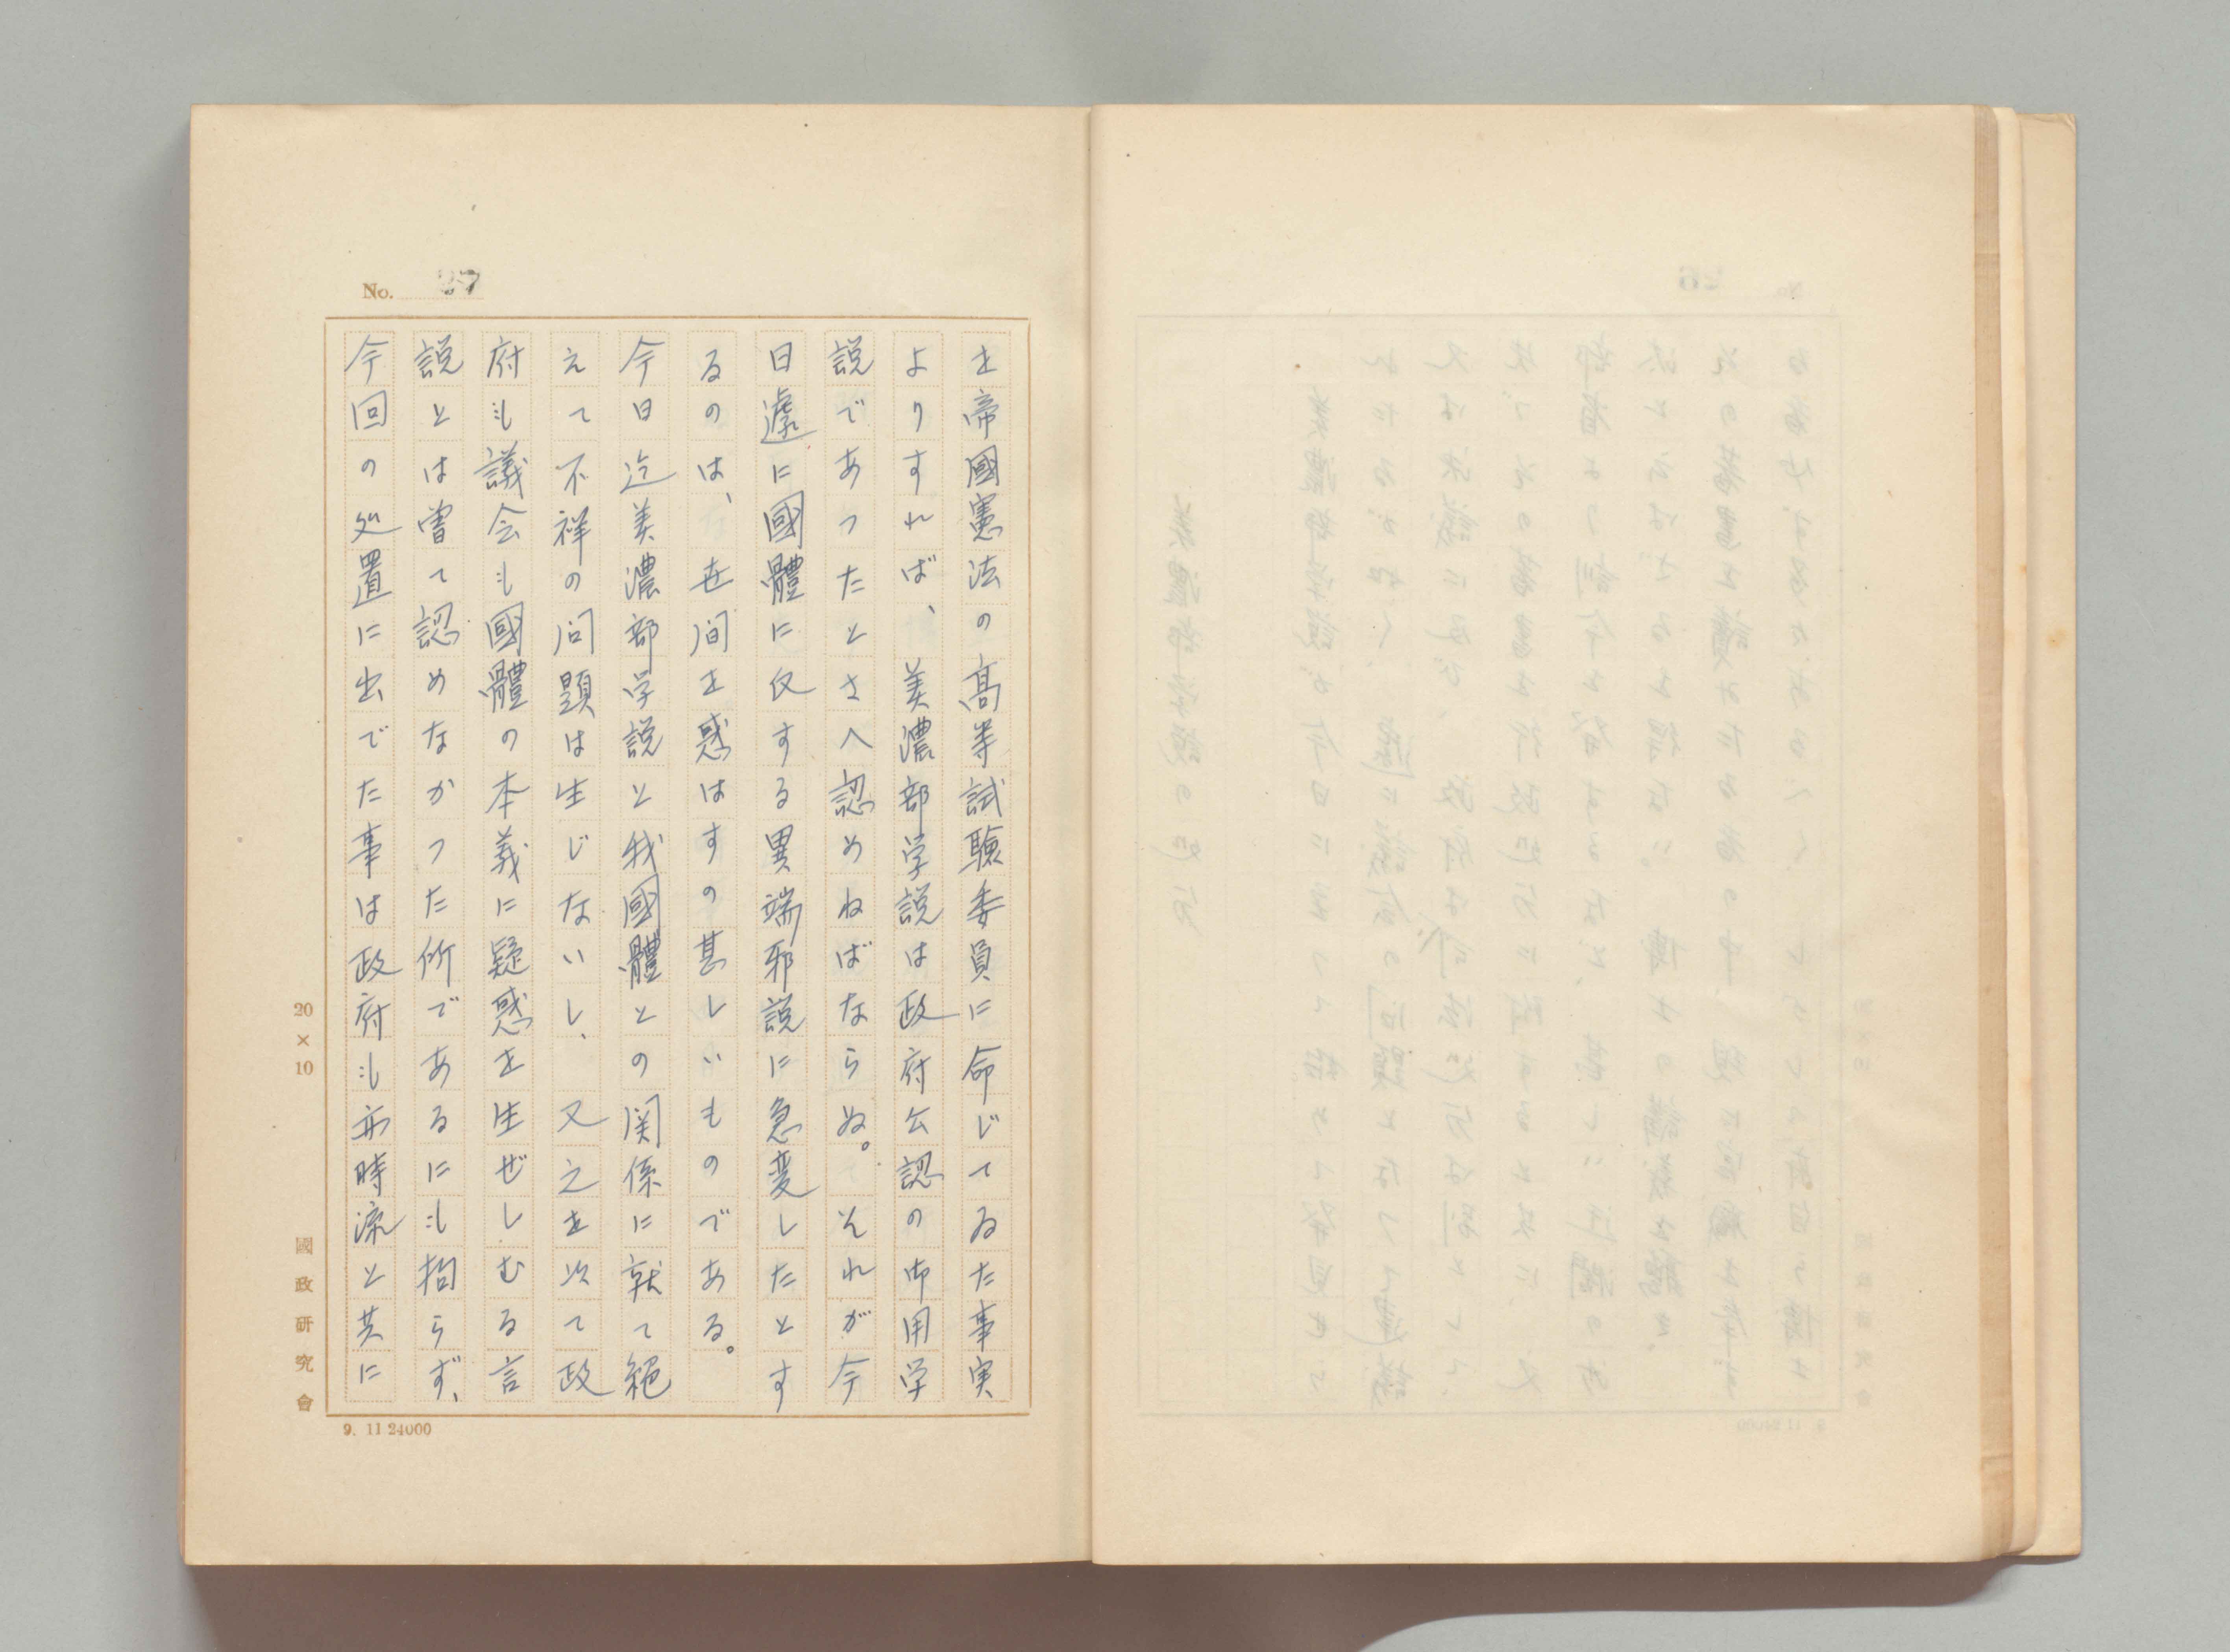 No. 27
を帝國憲法の高等試験委員に命じてゐた事実
よりすれば、美濃部学説は政府公認の御用学
説であつたとさへ認めねばならぬ。それが今
日遽に國體に反する異端邪説に急変したとす
るのは、世間を惑はすの甚しいものである。
今日迄美濃部学説と我國體との関係に就て絶
えて不祥の问題は生じないし、又之を以て政
府も議会も國體の本義に疑惑を生ぜしむる言
説とは曽て認めなかつた所であるにも拘らず、
今回の処置に出でた事は政府も亦時流と共に
20×10
國政研究會
9. 11 24000